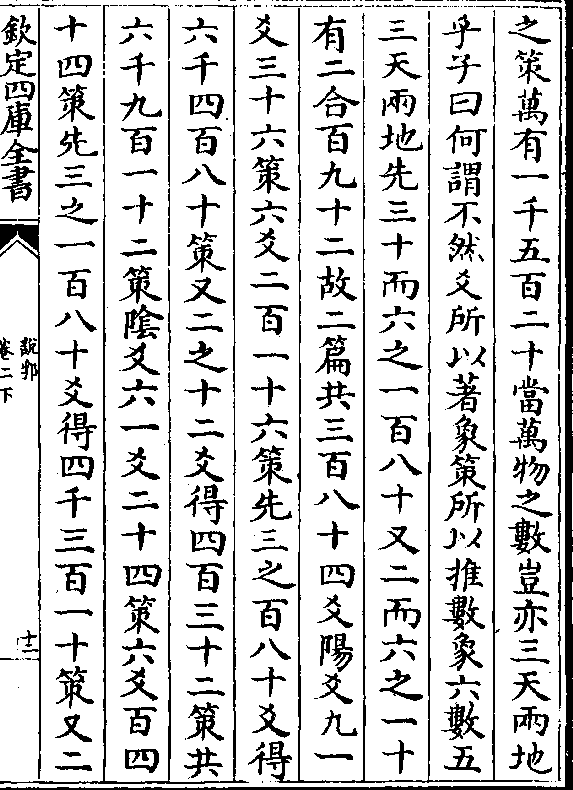 之策萬有一千五百二十當萬物之數豈亦三天兩地
乎子曰何謂不然爻所以著象策所以推數象六數五
三天兩地先三十而六之一百八十又二而六之一十
有二合百九十二故二篇共三百八十四爻陽爻九一
爻三十六策六爻二百一十六策先三之百八十爻得
六千四百八十策又二之十二爻得四百三十二策共
六千九百一十二策隂爻六一爻二十四策六爻百四
十四策先三之一百八十爻得四千三百一十策又二
欽定四庫全書
說郛
卷二下
十二